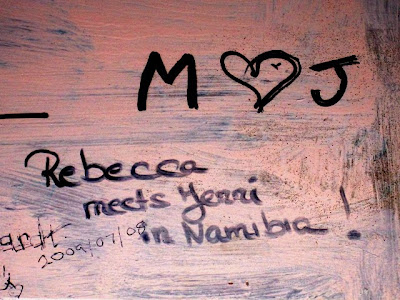 M ♡ J
Rebecca
meets Yenni
in Namibia!
2009/07/08